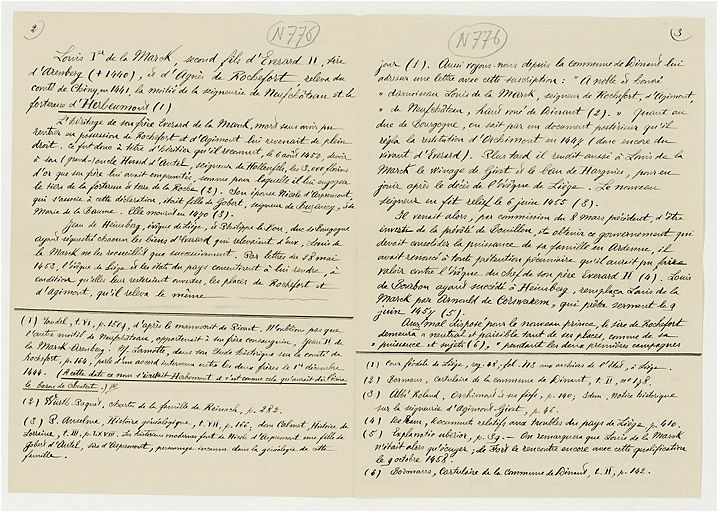 2
N776
Louis Ier de la Marck, second fils d'Everard II, sire
d'Arenberg († 1440), et d'Agnès de Rochefort releva du
comté de Chiny, en 1441, la moitié de la seigneurie de Neufchâteau et la
forteresse d'Herbeumont (1)
L'héritage de son frère Everard de la Marck, mort sans avoir pu
rentrer en possession de Rochefort et d'Agimont lui revenait de plein
droit. Ce fut donc à titre d'héritier qu'il reconnut, le 6 août 1452, devoir
à son (grand-)oncle Henri d'Autel, seigneur de Hollenfels, les 3,000 florins
d'or que son frère lui avait empruntés, somme pour laquelle il lui engagea
le tiers de la forteresse & terre de la Roche (2). Son épouse Nicole d'Aspremont,
qui s'associe à cette déclaration, était fille de Gobert, seigneur de Buzancy, & de
Marie de la Baume. Elle mourut en 1470 (3).
Jean de Heinsberg, évêque de Liège, & Philippe le Bon, duc de Bourgogne
ayant séquestré chacun les biens d'Everard qui relevaient d'eux, Louis de
la Marck ne les recueillit que successivement. Par lettres du 28 mai
1453, l'évêque de Liège & les états du pays consentirent à lui rendre, à
condition qu'elles leur resteraient ouvertes, les places de Rochefort et
d'Agimont, qu'il releva le même
(1) d'après le manuscrit de N'oublions pas que
l'autre moitié de Neufchâteau, appartenait à son frère consanguin, Jean II de
la Marck-Arenberg. Cf. Lamotte, dans son Etude historique sur le comté de
Rochefort, p. 164, parle d'un accord intervenu entre les deux frères le 1er décembre
1444. (A cette date ce nom s'écrivait Harbemont et c'est comme cela qu'aurait dû
le baron de
(2) Würth-Paquet, Chartes de la famille de Reinach, p. 282.
(3) P. Anselme, Histoire généalogique, t. VII, p. 166, dom Calmet, Histoire de
Lorraine, t. III, p. LXVIII. Les historiens modernes font de Nicole d'Aspremont une fille de
Gobert d'Autel, sire d'Aspremont, personnage inconnu dans la généalogie de cette
famille.
3
N776
jour (1). Aussi voyons-nous depuis la commune de Dinant lui
adresser une lettre avec cette suscription: "A noble & honoré
" damoiseau Louis de la Marck, seigneur de Rochefort, d'Agimont,
" de Neufchâteau, haut voué de Dinant (2). " Quant au
duc de Bourgogne, on sait par un document postérieur qu'il
régla la restitution d'Orchimont en 1448 (donc encore du
vivant d'Everard). Plus tard il rendit aussi à Louis de la
Marck le vivage de Givet & le ban de Hargnies, peu de
jours après le décès de l'évêque de Liège. Le nouveau
seigneur en fit relief le 6 juin 1455 (3).
Il venait alors, par commission du 8 mars précédent, d'être
investi de la prévôté de Bouillon, & obtenir ce gouvernement qui
devait consolider la puissance de sa famille en Ardenne, il
avait renoncé à toute prétention pécuniaire qu'il aurait pu faire
valoir contre l'évêque du chef de son père Everard II (4). Louis
de Bourbon ayant succédé à Heinsberg, remplaça Louis de la
Marck par Arnould de Corswarem, qui prêta serment le 9
juin 1457 (5).
Assez mal disposé pour le nouveau prince, le sire de Rochefort
demeura " neutral et paisible tant de ses places, comme de sa
" puissance et sujets (6), " pendant les deux premières campagnes
(1) Cour féodale de Liège, reg. 48, fol. 113 aux archives de l'Etat, à Liège.
(2) Bormans, Cartulaire de la commune de Dinant, t. II, n° 148.
(3) Abbé Roland, Orchimont & ses fiefs, p. 140; Idem, Notice historique
sur la seigneurie d'Agimont-Givet, p. 46.
(4) de Ram, Documents relatifs aux troubles du pays de Liège, p. 410.
(5) Explanatio uberior, p. 39. — On remarquera que Louis de la Marck
n'était alors qu'écuyer; de Fort le rencontre encore avec cette qualification
le 9 octobre 1458.
(6) Bormans, Cartulaire de la commune de Dinant, t. II, p. 142.